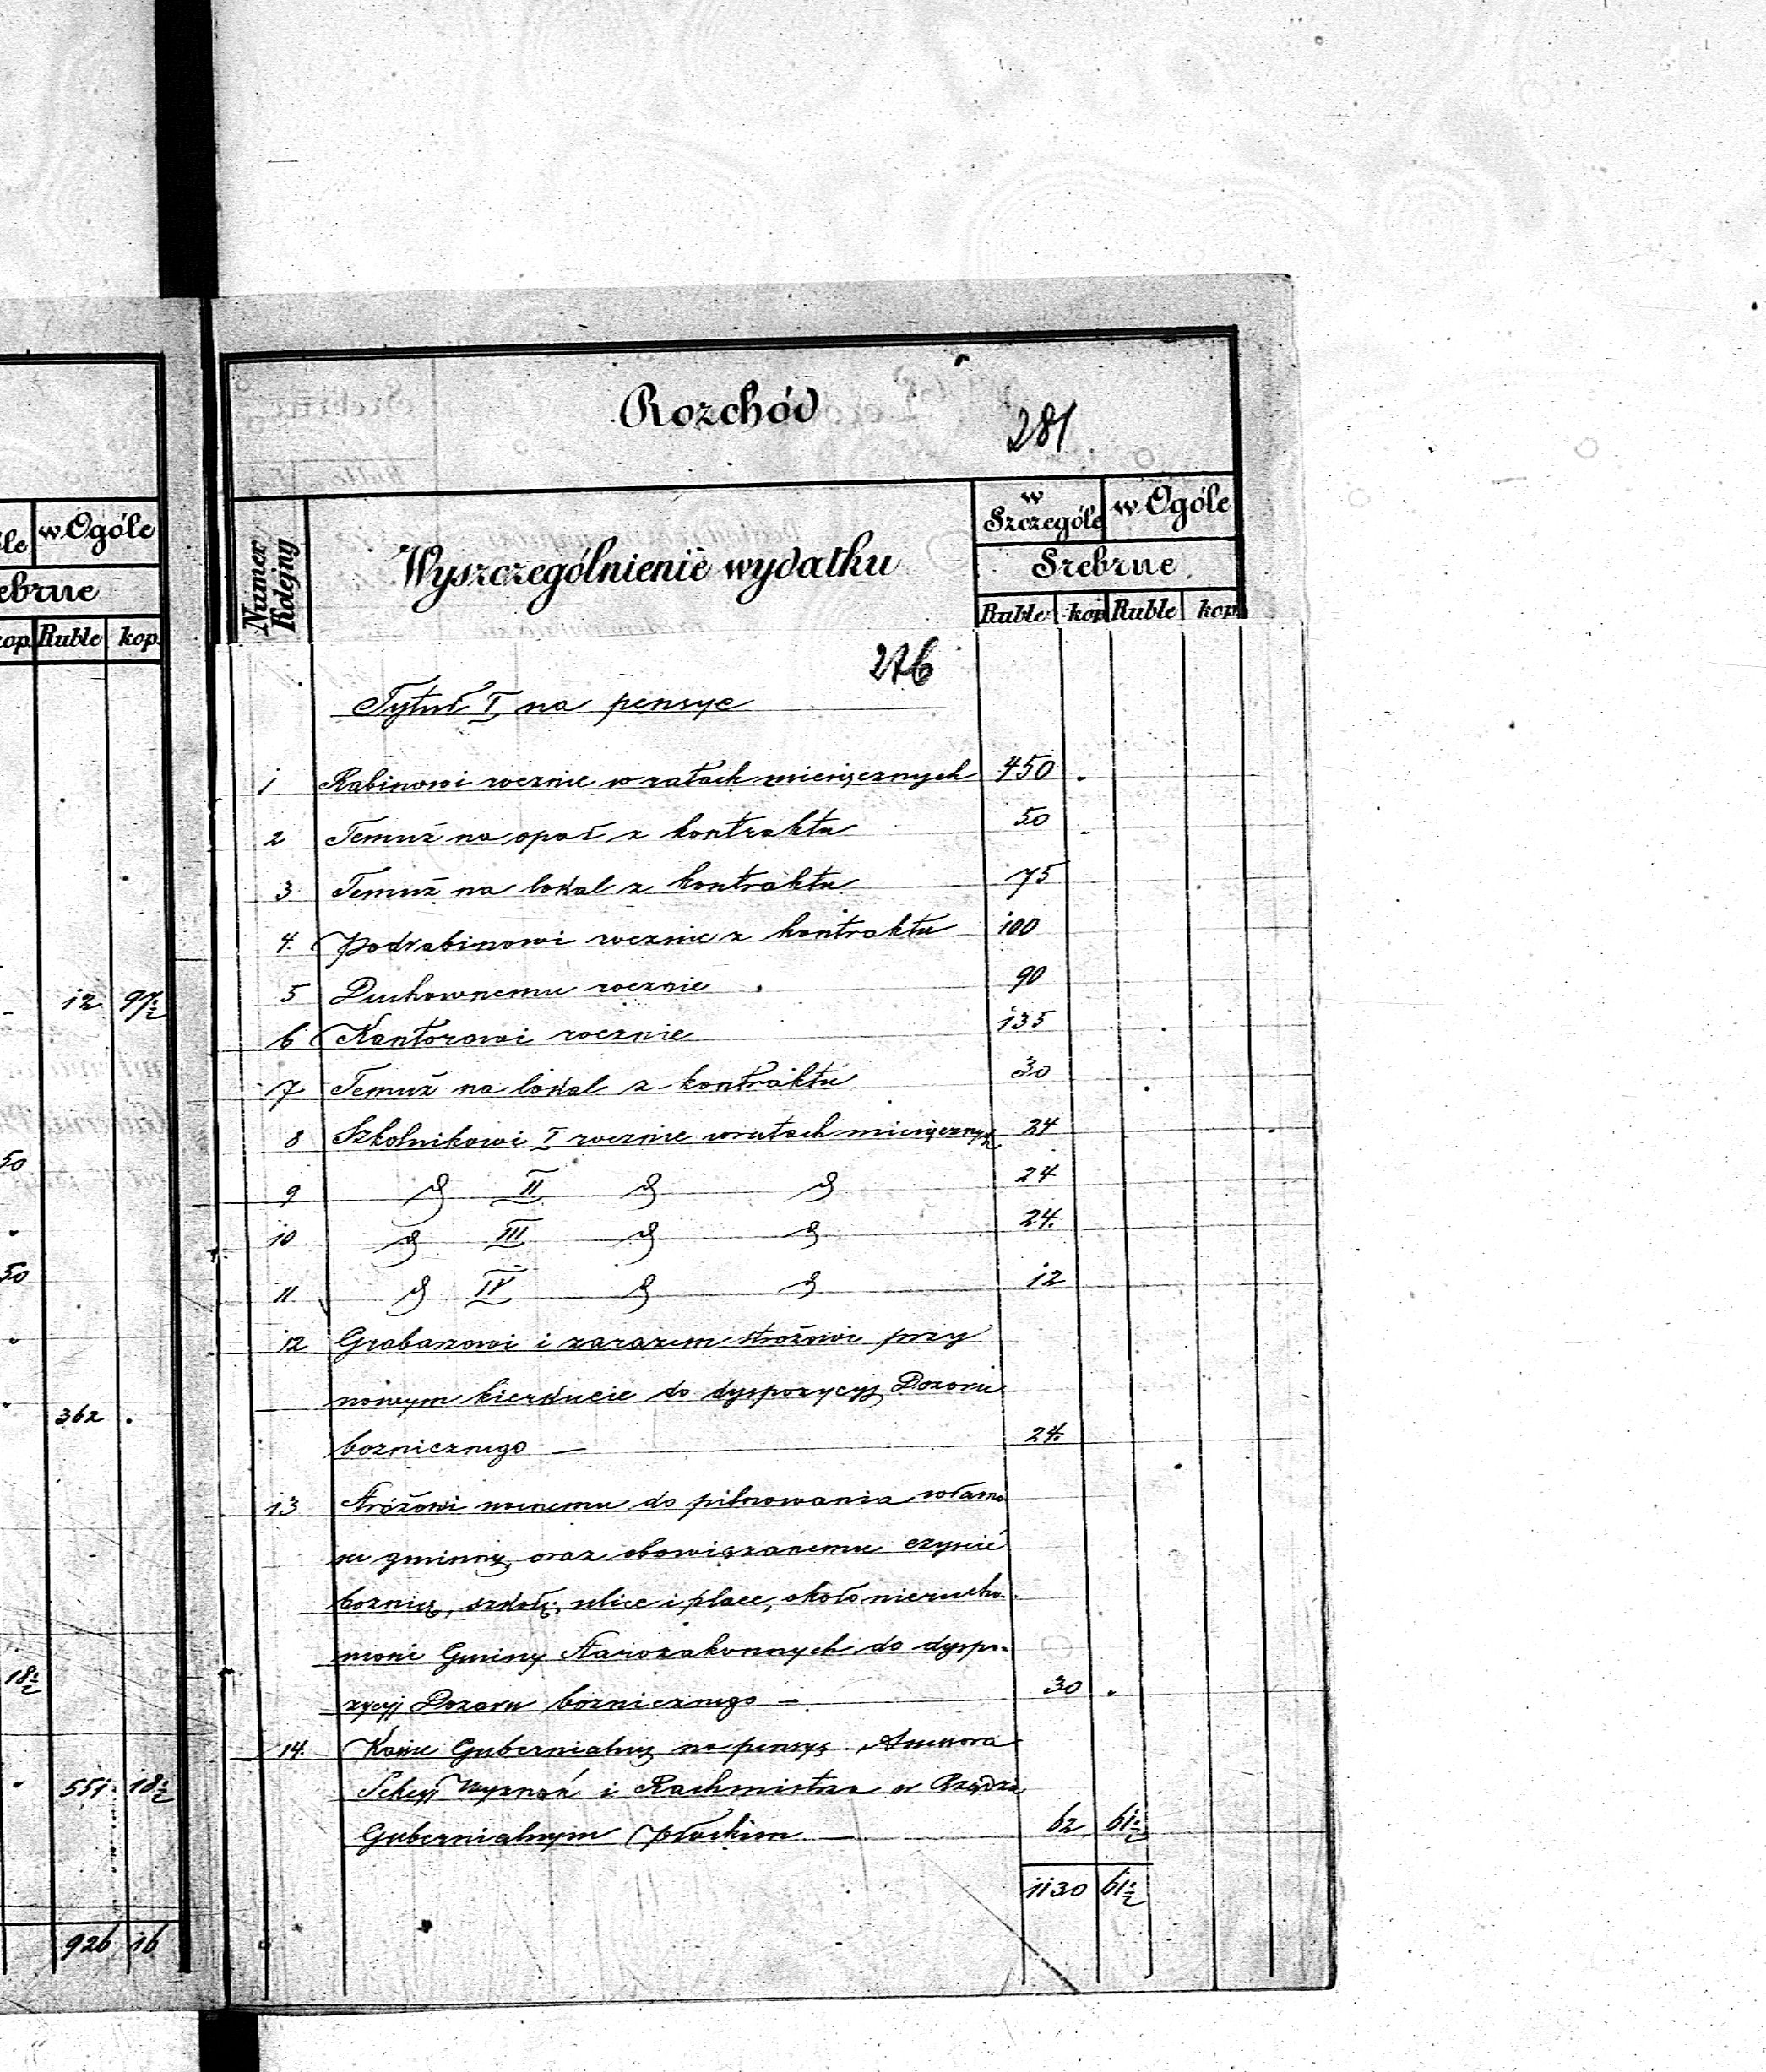 le w Ogóle
ebrne
kop. Ruble kop.
12 97½
50
50
362 .
18½
551 18½
926 16
Rozchód
281
Numer Kolejny
Wyszczególnienie wydatku
w Szczególe w Ogóle
Srebrne
Ruble kop Ruble kop
276
Tytuł I na pensye
1 Rabinowi rocznie w ratach miesięcznych 450 .
2 Temuż na opał z kontraktu 50
3 Temuż na lokal z kontraktu 75
4. Podrabinowi rocznie z kontraktu 100
5 Duchownemu rocznie 90
6 Kantorowi rocznie 135
7 Temuż na lokal z kontraktu 30
8 Szkolnikowi I rocznie w ratach miesięcznych 24
9 II 24
10 III 24.
11 IV 12
12 Grabarzowi i zarazem stróżowi przy
nowym kierkucie do dyspozycyj Dozoru
boznicznego — 24.
13 Stróżowi nocnemu do pilnowania własno
sci gminnej, oraz obowiązanemu czyscić
boznicę, szkołę, ulice i place, około nierucho-
mosci Gminy Starozakonnych do dyspo-
zycyj Dozoru boznicznego — 30 .
14. Kassie Gubernialnej na pensyę Assessora
Sekcyj Wyznań i Rachmistrza w Rządzie
Gubernialnym Płockim — 62 61½
1130 61½